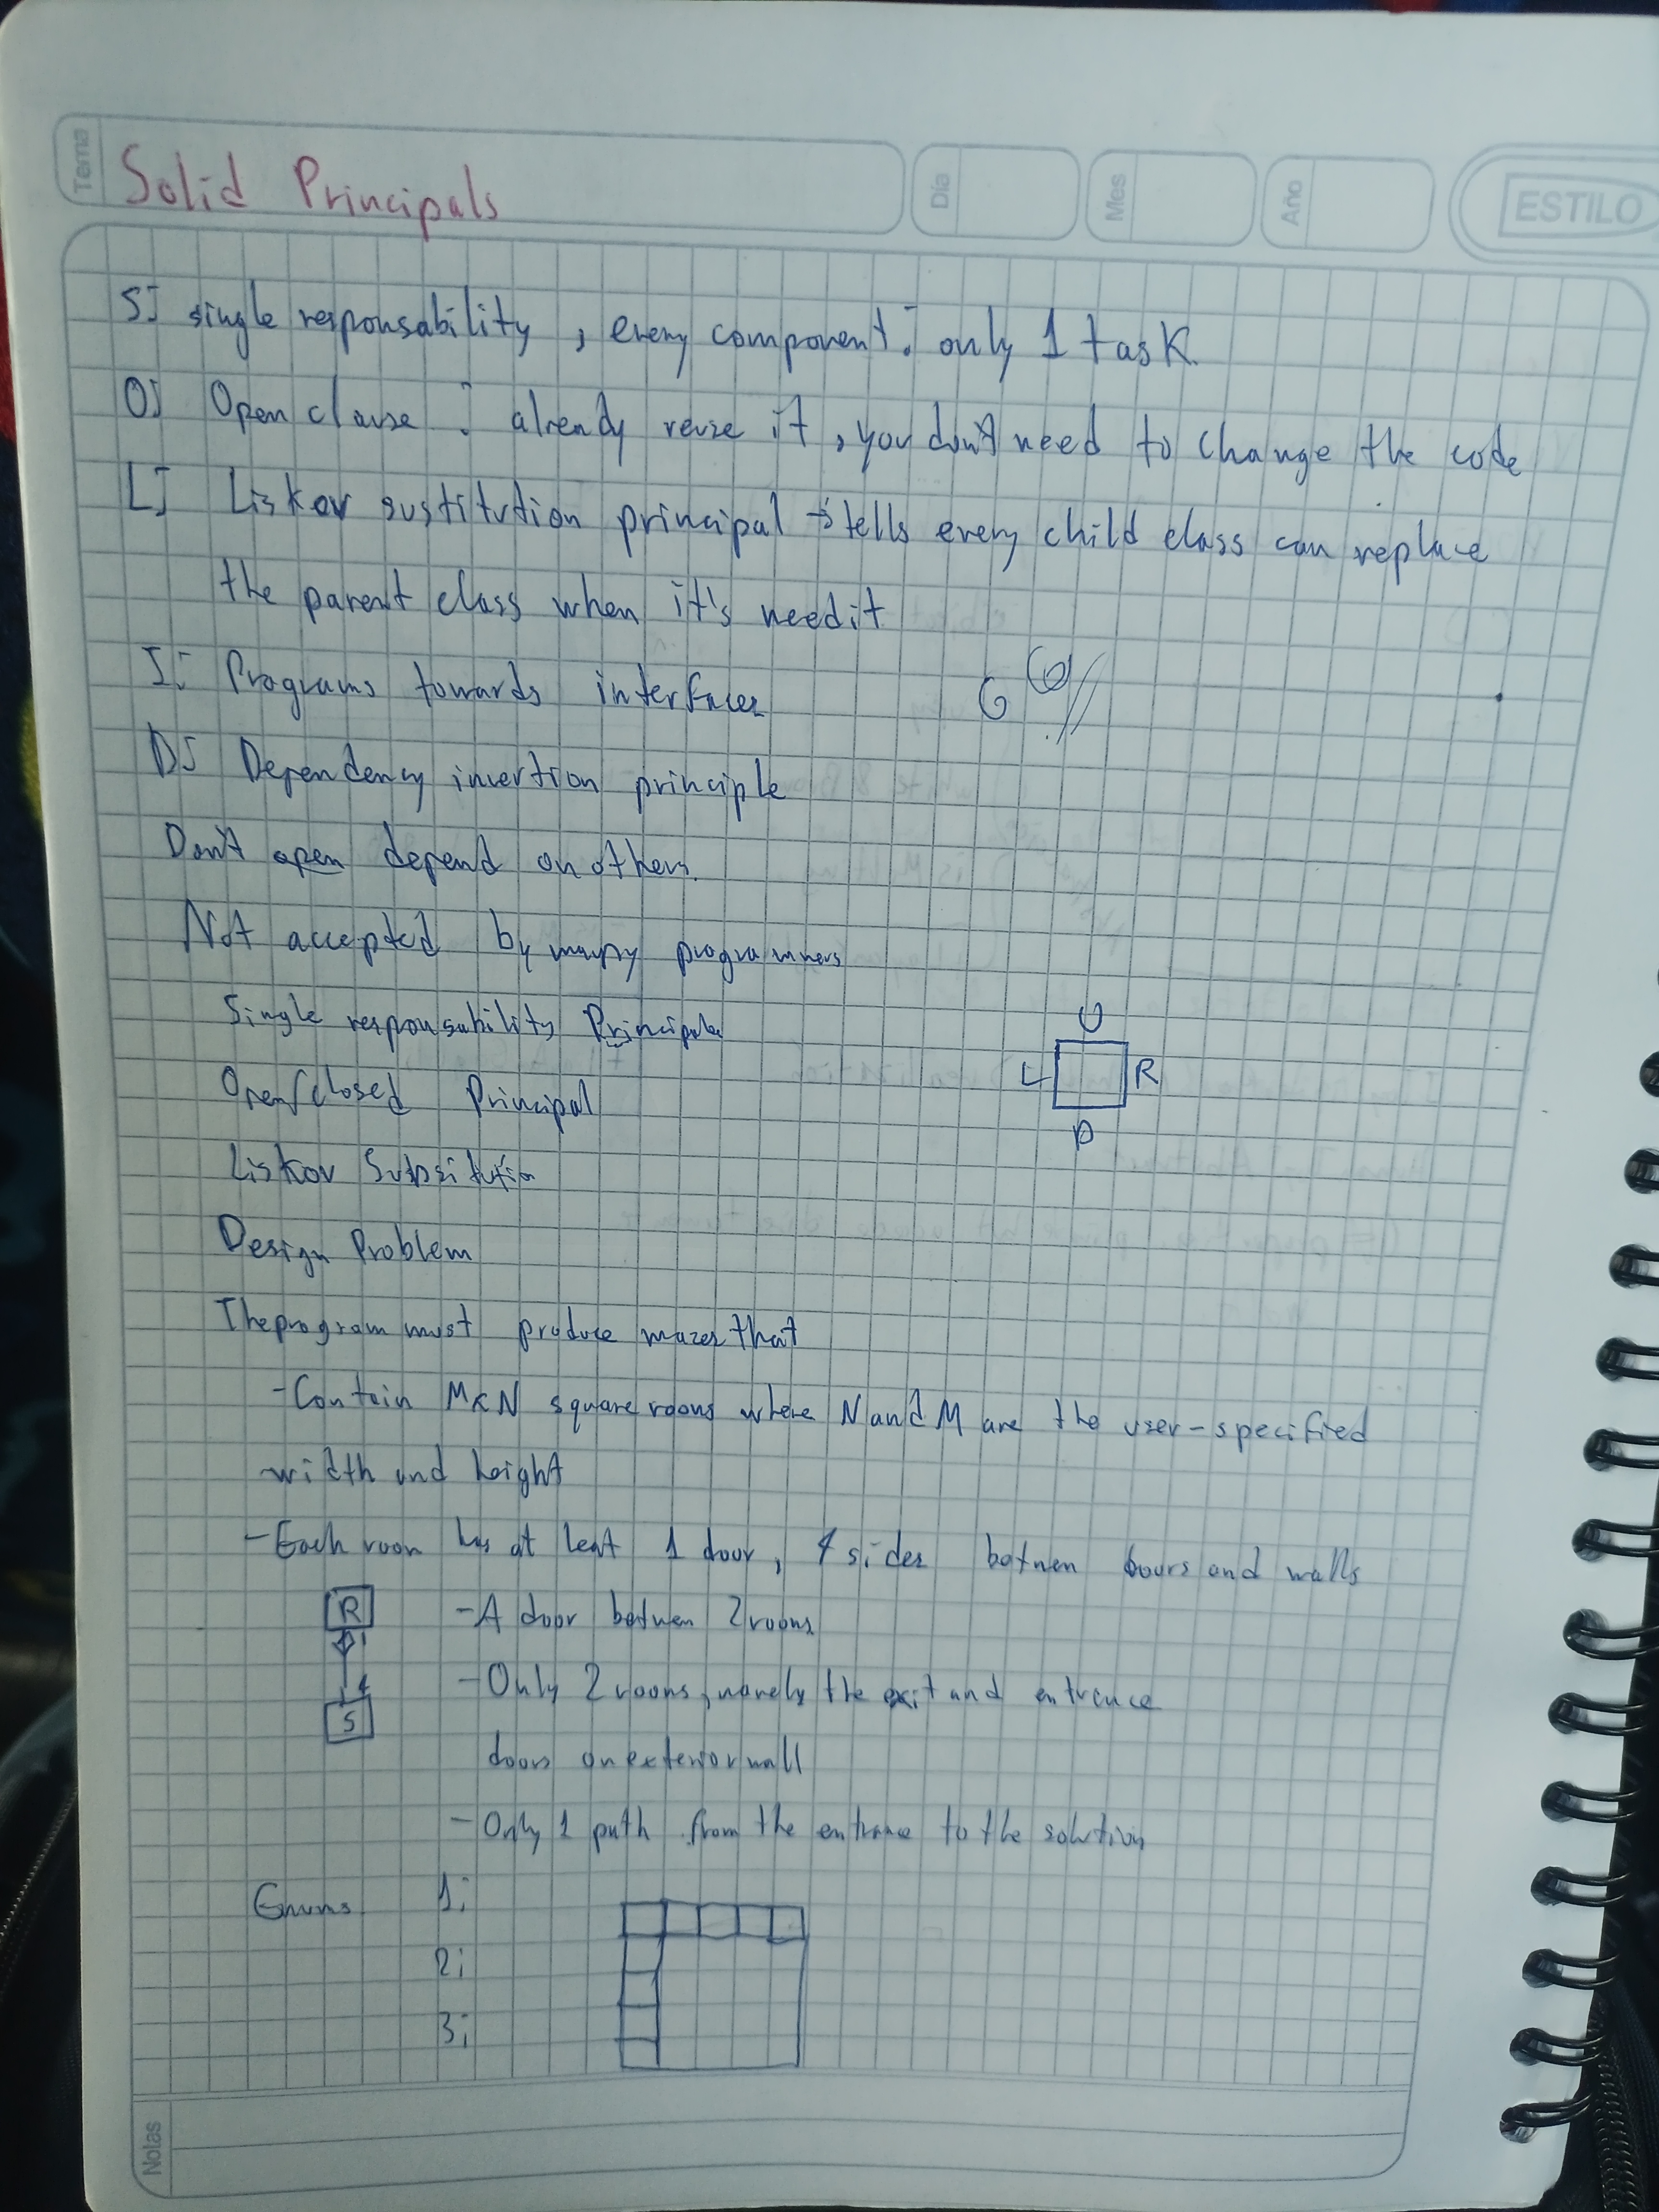 Tema
Solid Principals
Día
Mes
Año
ESTILO
S: single responsability, every component: only 1 task
O: Open clause: already reuse it, you don't need to change the code
L: Liskov sustitution principal → tells every child class can replace
the parent class when it's needit
I: Programs towards interfaces
D: Dependency invertion principle
Don't open depend on others.
Not accepted by many programmers
Single responsability Principale
Open/closed Principal
Liskov Subsitution
U
L R
D
Design Problem
The program must produce mazes that
- Contain MxN square rooms where N and M are the user-specified
width and height
- Each room has at leat 1 door, 4 sides betwen doors and walls
R
- A door betwen 2 rooms
1
- Only 2 rooms, namely the exit and entrance
4
S
doors on exterior wall
- Only 1 path from the entrance to the solution
Enums 1;
2;
3;
Notas